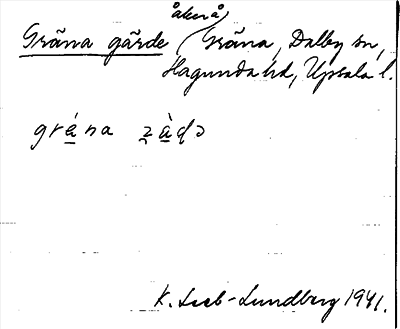 åkerå
Gräna gärde Gräna, Dalby sn,
Hagunda hd, Upsala l.
grä́na ʒä̀ḍə
K. Leeb-Lundberg 1941.